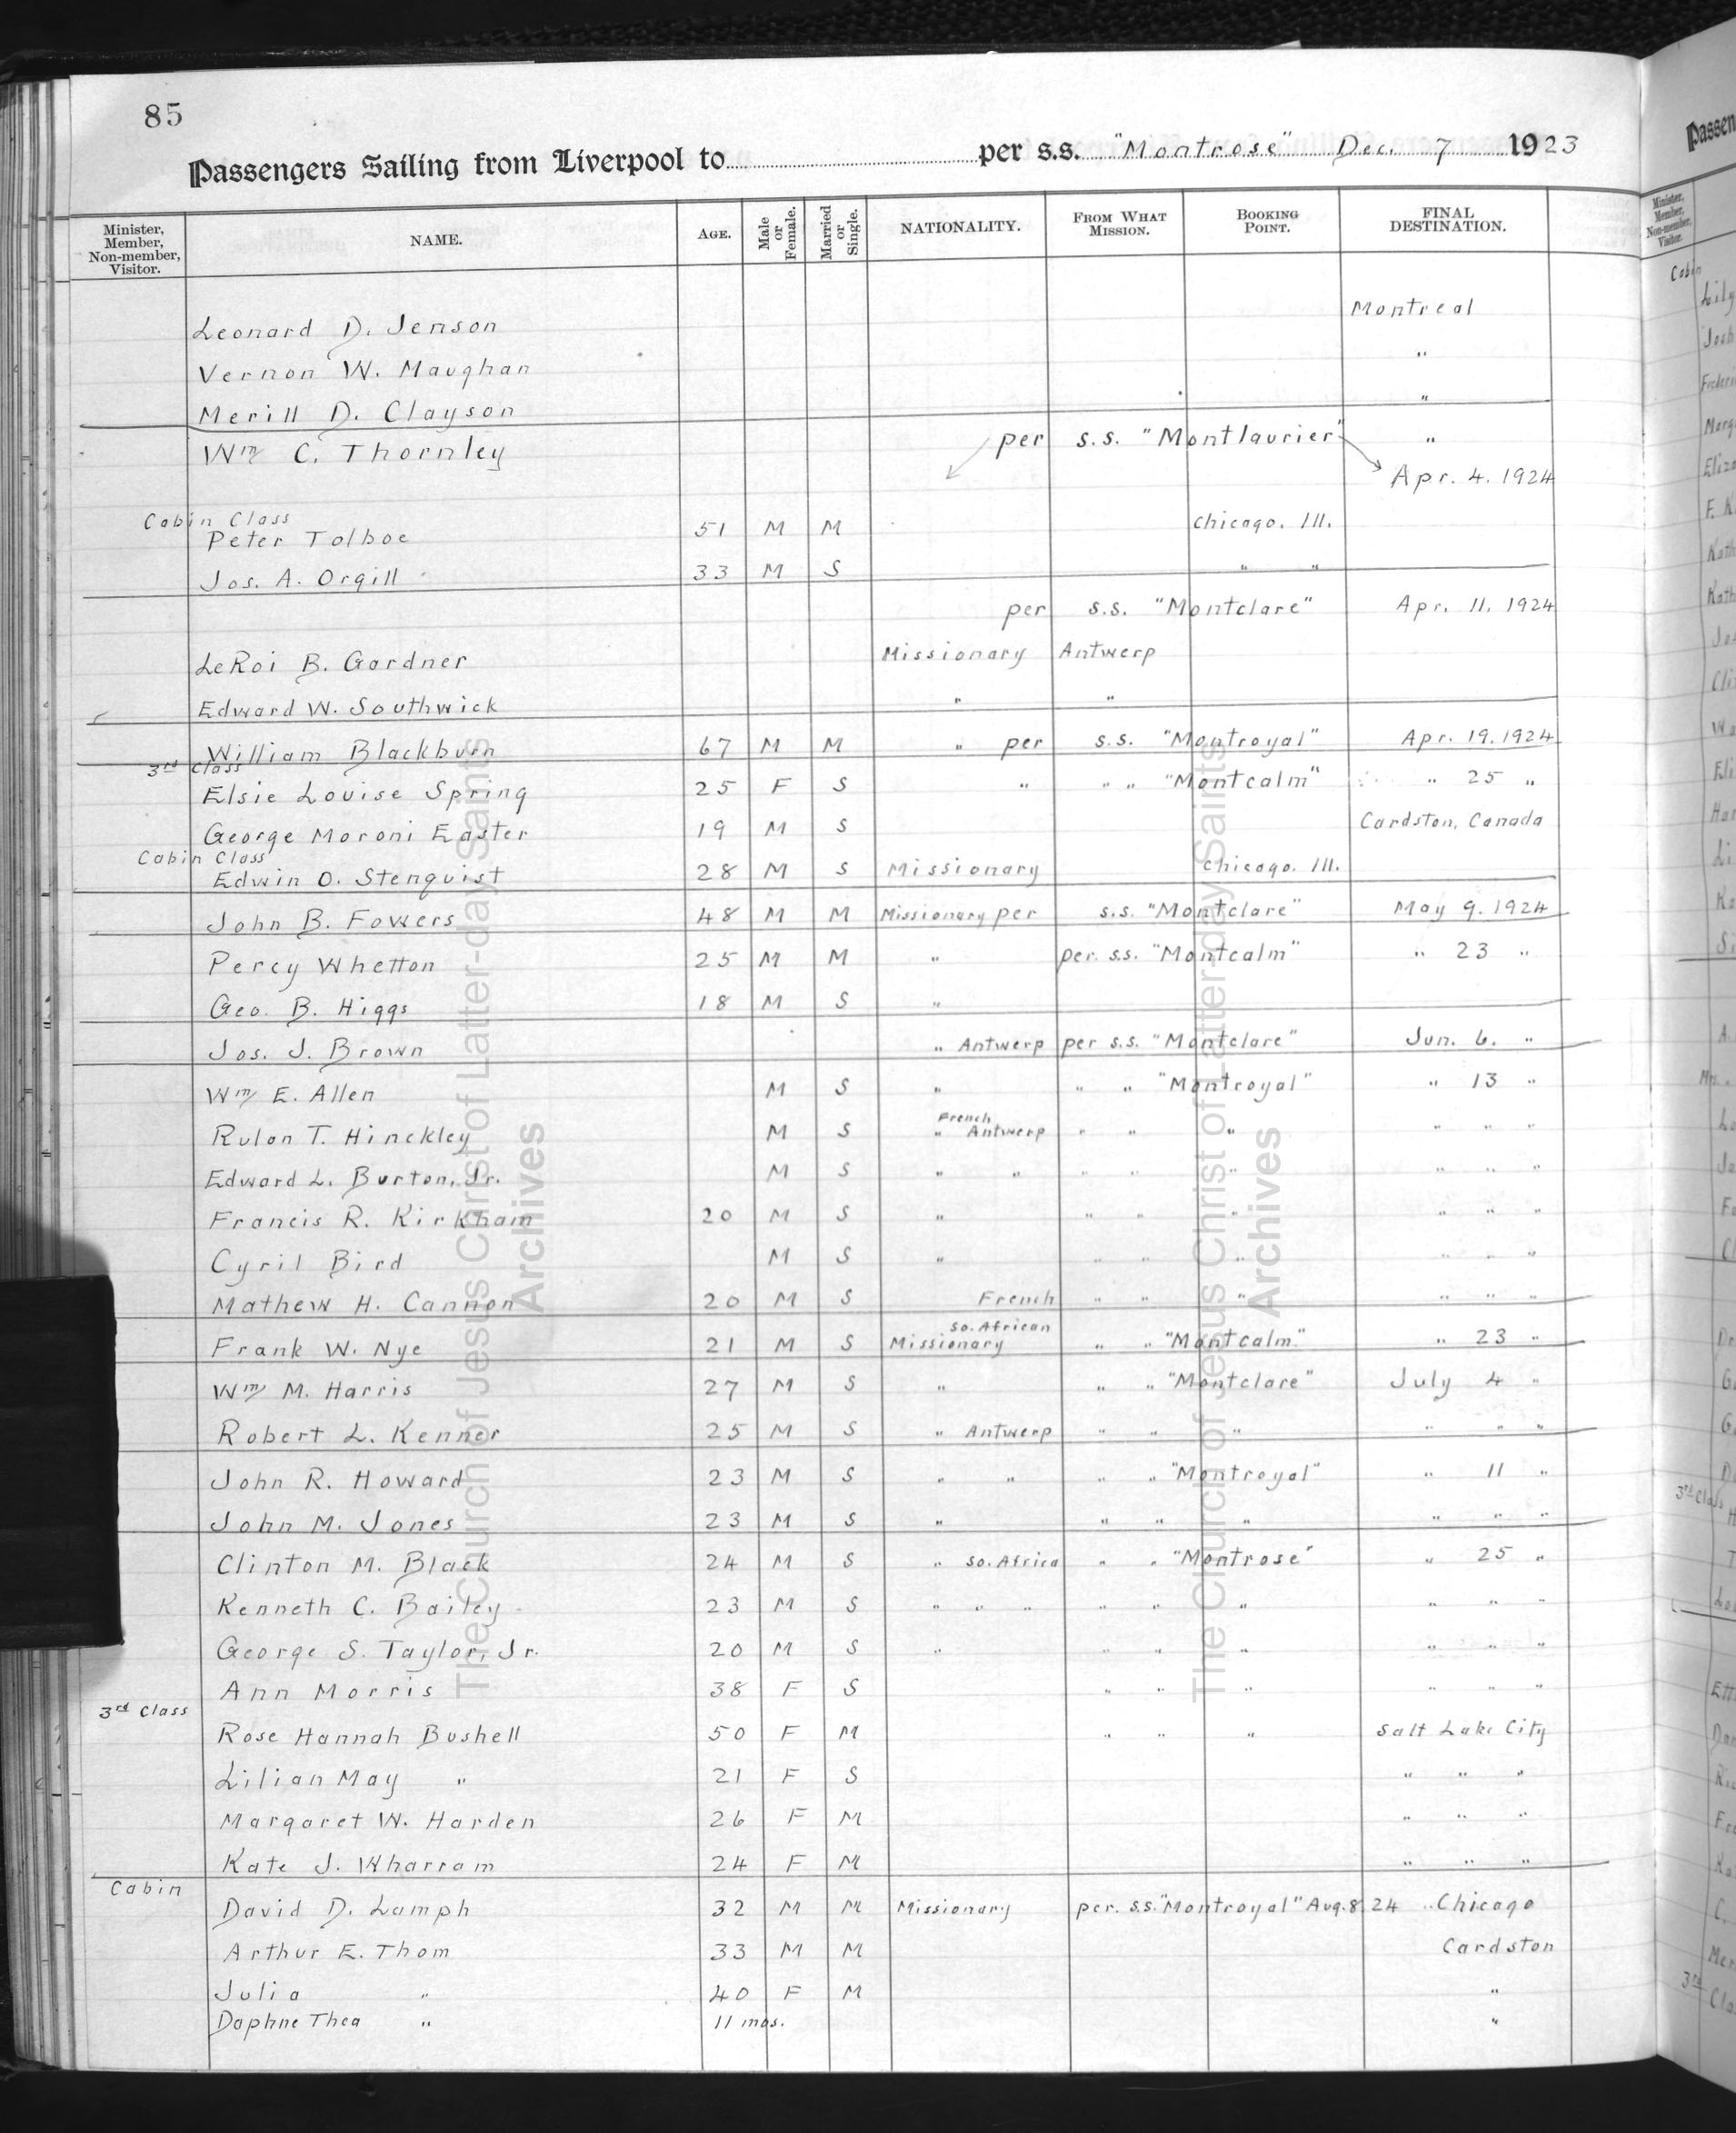 85
Passengers Sailing from Liverpool to per s.s. "Montrose" Dec. 7 1923
Minister, Member, Non-member, Visitor. NAME. AGE. Male or Female. Married or Single. NATIONALITY. FROM WHAT MISSION. BOOKING POINT. FINAL DESTINATION.
Leonard D. Jenson Montreal
Vernon W. Maughan "
Merill D. Clayson "
Wm C. Thornley per s.s. "Montlaurier" "
Apr. 4. 1924
Cabin Class
Peter Tolboe 51 M M Chicago. Ill.
Jos. A. Orgill 33 M S " "
per s.s. "Montclare" Apr. 11. 1924
LeRoi B. Gardner Missionary Antwerp
Edward W. Southwick " "
William Blackburn 67 M M " per s.s. "Montroyal" Apr. 19. 1924
3rd Class
Elsie Louise Spring 25 F S " " " "Montcalm" " 25 "
George Moroni Easter 19 M S Cardston, Canada
Cabin Class
Edwin O. Stenquist 28 M S Missionary Chicago. Ill.
John B. Fowers 48 M M Missionary per s.s. "Montclare" May 9. 1924
Percy Whetton 25 M M " per. s.s. "Montcalm" " 23 "
Geo. B. Higgs 18 M S "
Jos. J. Brown " Antwerp per s.s. "Montclare" Jun. 6. "
Wm E. Allen M S " " " "Montroyal" " 13 "
Rulon T. Hinckley M S " French Antwerp " " " " " "
Edward L. Burton, Jr. M S " " " " " " " "
Francis R. Kirkham 20 M S " " " " " " "
Cyril Bird M S " " " " " " "
Mathew H. Cannon 20 M S French " " " " " "
Frank W. Nye 21 M S So. African Missionary " " "Montcalm" " 23 "
Wm M. Harris 27 M S " " " "Montclare" July 4 "
Robert L. Kenner 25 M S " Antwerp " " " " " "
John R. Howard 23 M S " " " " "Montroyal" " 11 "
John M. Jones 23 M S " " " " " " "
Clinton M. Black 24 M S " So. Africa " " "Montrose" " 25 "
Kenneth C. Bailey 23 M S " " " " " " " " "
George S. Taylor, Jr. 20 M S " " " " " " "
Ann Morris 38 F S " " " " " "
3rd Class
Rose Hannah Bushell 50 F M " " " Salt Lake City
Lilian May " 21 F S " " "
Margaret W. Harden 26 F M " " "
Kate J. Wharram 24 F M " " "
Cabin
David D. Lamph 32 M M Missionary per. s.s. "Montroyal" Aug. 8 24 Chicago
Arthur E. Thom 33 M M Cardston
Julia " 40 F M "
Daphne Thea " 11 mos. "
The Church of Jesus Christ of Latter-day Saints
Archives
The Church of Jesus Christ of Latter-day Saints
Archives